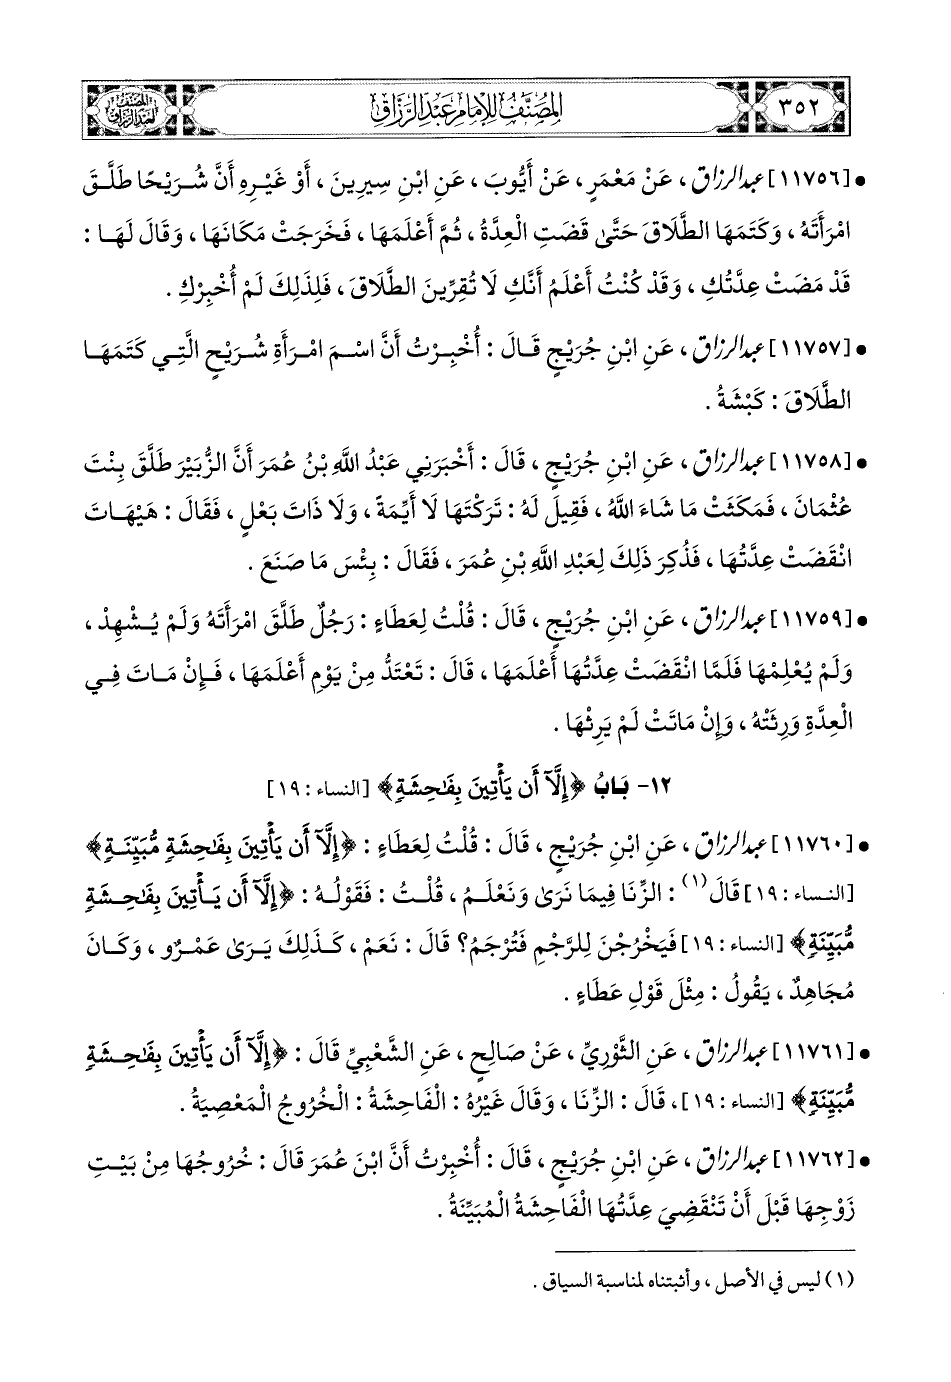 ٣٥٢
المصنف للإمام عبد الرزاق
المصنف
لعبد الرزاق
• [١١٧٥٦] عبد الرزاق ، عَنْ مَعْمَرٍ ، عَنْ أَيُّوبَ ، عَنِ ابْنِ سِيرِينَ ، أَوْ غَيْرِهِ أَنَّ شُرَيْحًا طَلَّقَ
امْرَأَتَهُ ، وَكَتَمَهَا الطَّلَاقَ حَتَّىٰ قَضَتِ الْعِدَّةُ ، ثُمَّ أَعْلَمَهَا ، فَخَرَجَتْ مَكَانَهَا ، وَقَالَ لَهَا :
قَدْ مَضَتْ عِدَّتُكِ ، وَقَدْ كُنْتُ أَعْلَمُ أَنَّكِ لَا تُقِرِّينَ الطَّلَاقَ ، فَلِذَلِكَ لَمْ أُخْبِرْكِ .
• [١١٧٥٧] عبد الرزاق ، عَنِ ابْنِ جُرَيْجٍ قَالَ : أُخْبِرْتُ أَنَّ اسْمَ امْرَأَةِ شُرَيْحٍ الَّتِي كَتَمَهَا
الطَّلَاقَ : كَبْشَةُ .
• [١١٧٥٨] عبد الرزاق ، عَنِ ابْنِ جُرَيْجٍ ، قَالَ : أَخْبَرَنِي عَبْدُ اللَّهِ بْنُ عُمَرَ أَنَّ الزُّبَيْرَ طَلَّقَ بِنْتَ
عُثْمَانَ ، فَمَكَثَتْ مَا شَاءَ اللَّهُ ، فَقِيلَ لَهُ : تَرَكْتَهَا لَا أَيِّمَةً ، وَلَا ذَاتَ بَعْلٍ ، فَقَالَ : هَيْهَاتَ
انْقَضَتْ عِدَّتُهَا ، فَذُكِرَ ذَلِكَ لِعَبْدِ اللَّهِ بْنِ عُمَرَ ، فَقَالَ : بِئْسَ مَا صَنَعَ .
• [١١٧٥٩] عبد الرزاق ، عَنِ ابْنِ جُرَيْجٍ ، قَالَ : قُلْتُ لِعَطَاءٍ : رَجُلٌ طَلَّقَ امْرَأَتَهُ وَلَمْ يُشْهِدْ ،
وَلَمْ يُعْلِمْهَا فَلَمَّا انْقَضَتْ عِدَّتُهَا أَعْلَمَهَا ، قَالَ : تَعْتَدُّ مِنْ يَوْمِ أَعْلَمَهَا ، فَإِنْ مَاتَ فِي
الْعِدَّةِ وَرِثَتْهُ ، وَإِنْ مَاتَتْ لَمْ يَرِثْهَا .
١٢- بَابُ ﴿إِلَّآ أَن يَأْتِينَ بِفَٰحِشَةٍ﴾ [النساء : ١٩]
• [١١٧٦٠] عبد الرزاق ، عَنِ ابْنِ جُرَيْجٍ ، قَالَ : قُلْتُ لِعَطَاءٍ : ﴿إِلَّآ أَن يَأْتِينَ بِفَٰحِشَةٍ مُّبَيِّنَةٍ﴾
[النساء : ١٩] قَالَ (١) : الزِّنَا فِيمَا نَرَىٰ وَنَعْلَمُ ، قُلْتُ : فَقَوْلُهُ : ﴿إِلَّآ أَن يَأْتِينَ بِفَٰحِشَةٍ
مُّبَيِّنَةٍ﴾ [النساء : ١٩] فَيَخْرُجْنَ لِلرَّجْمِ فَتُرْجَمُ؟ قَالَ : نَعَمْ ، كَذَلِكَ يَرَىٰ عَمْرٌو ، وَكَانَ
مُجَاهِدٌ ، يَقُولُ : مِثْلَ قَوْلِ عَطَاءٍ .
• [١١٧٦١] عبد الرزاق ، عَنِ الثَّوْرِيِّ ، عَنْ صَالِحٍ ، عَنِ الشَّعْبِيِّ قَالَ : ﴿إِلَّآ أَن يَأْتِينَ بِفَٰحِشَةٍ
مُّبَيِّنَةٍ﴾ [النساء : ١٩] ، قَالَ : الزِّنَا ، وَقَالَ غَيْرُهُ : الْفَاحِشَةُ : الْخُرُوجُ الْمَعْصِيَةُ .
• [١١٧٦٢] عبد الرزاق ، عَنِ ابْنِ جُرَيْجٍ ، قَالَ : أُخْبِرْتُ أَنَّ ابْنَ عُمَرَ قَالَ : خُرُوجُهَا مِنْ بَيْتِ
زَوْجِهَا قَبْلَ أَنْ تَنْقَضِيَ عِدَّتُهَا الْفَاحِشَةُ الْمُبَيِّنَةُ .
(١) ليس في الأصل ، وأثبتناه لمناسبة السياق .